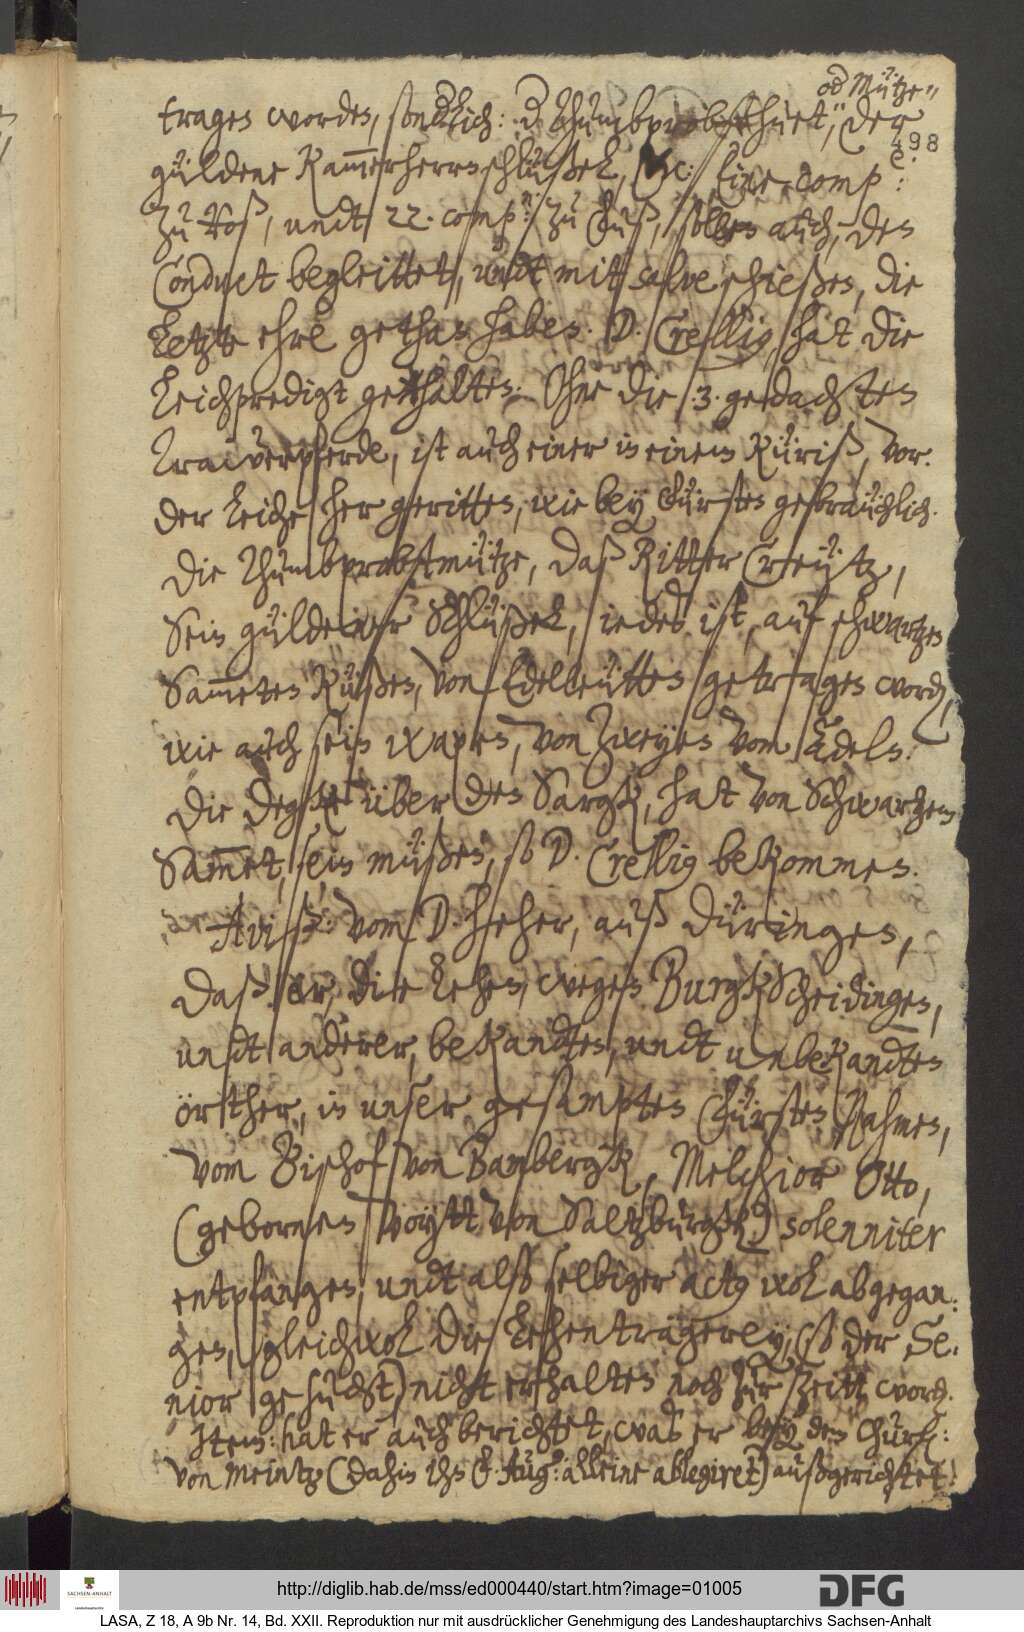 od Mütze"
tragen worden, sonderlich: d. Thumbprobsthuet," der
498
güldene Kammerherrnschlüßel, Eine comp:
zu Roß, undt 22. comp: zu Fuß, sollen auch, den
Conduct begleittet, undt mitt salve schießen, die
Letzte ehre gethan haben. D. Crellig, hat die
Leichpredigt gethalten. Ohne die 3. gedachten
Trawerpferde, ist auch einer in einem Küriß, vor
der Leiche her geritten, wie bey Fürsten gebraüchlich.
Die Thumbprobstmütze, daß Ritter Creütz,
Sein güldener Schlüßel, iedes ist, auf schwartzen
Sammeten Küßen, von Edelleütten getragen word,
wie auch sein wapen, von Zweyen vom Adel.
Die Decke über den Sargk, hat von Schwartzem
Sammet, sein müßen, so D. Crellig bekommen.
Aviß: vom D. Heher, auß Düringen,
daß er, die Lehen, wegen Burgk Scheidingen,
undt anderer, bekandten, undt unbekandten
örther, in unser gesampten Fürsten Nahmen,
vom Bischof von Bambergk, Melchior Otto,
(gebornen Voytt von Saltzburgk) solenniter
entpfangen, undt alß selbiger actus wol abgegan:
gen, gleichwol die Lehenträgerey, (so der Se:
nior gesucht) nicht erhalten noch zur Zeitt word.
Item: hat er auch berichtet, was er bey dem Churf:
von Meintz (dahin ihn F. Aug: alleine ablegiret) außgerichtet.
http://diglib.hab.de/mss/ed000440/start.htm?image=01005
SACHSEN-ANHALT
DFG
LASA, Z 18, A 9b Nr. 14, Bd. XXII. Reproduktion nur mit ausdrücklicher Genehmigung des Landeshauptarchivs Sachsen-Anhalt